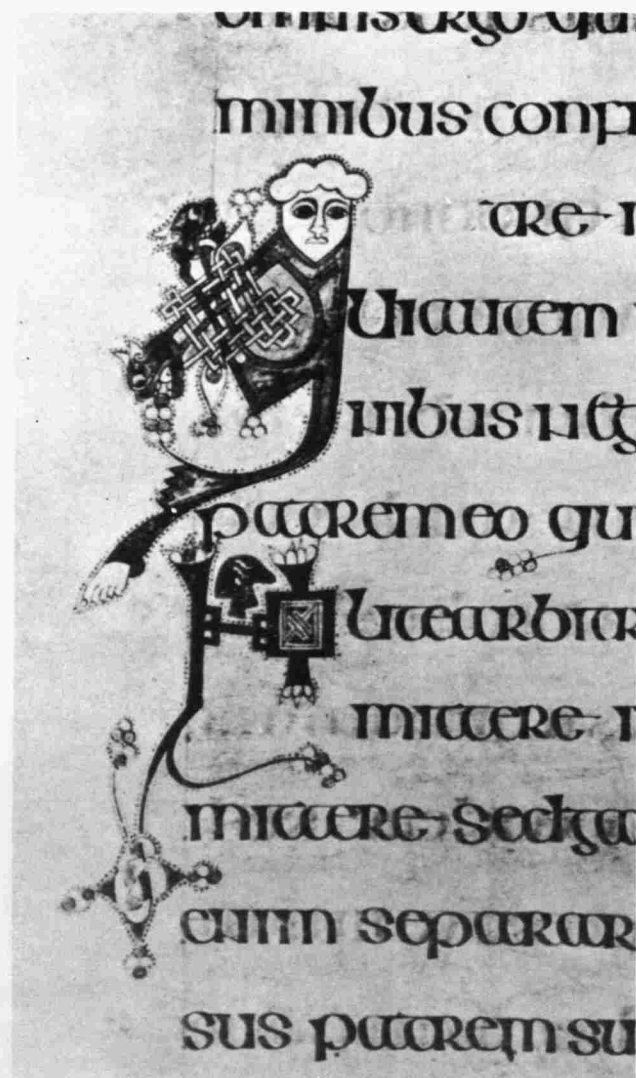 omnis ergo qui
minibus confi
tre
Qui autem
inibus neg
patrem eo qui
Nolite arbitrar
mittere i
mittere sed gla
enim separar
sus patrem su